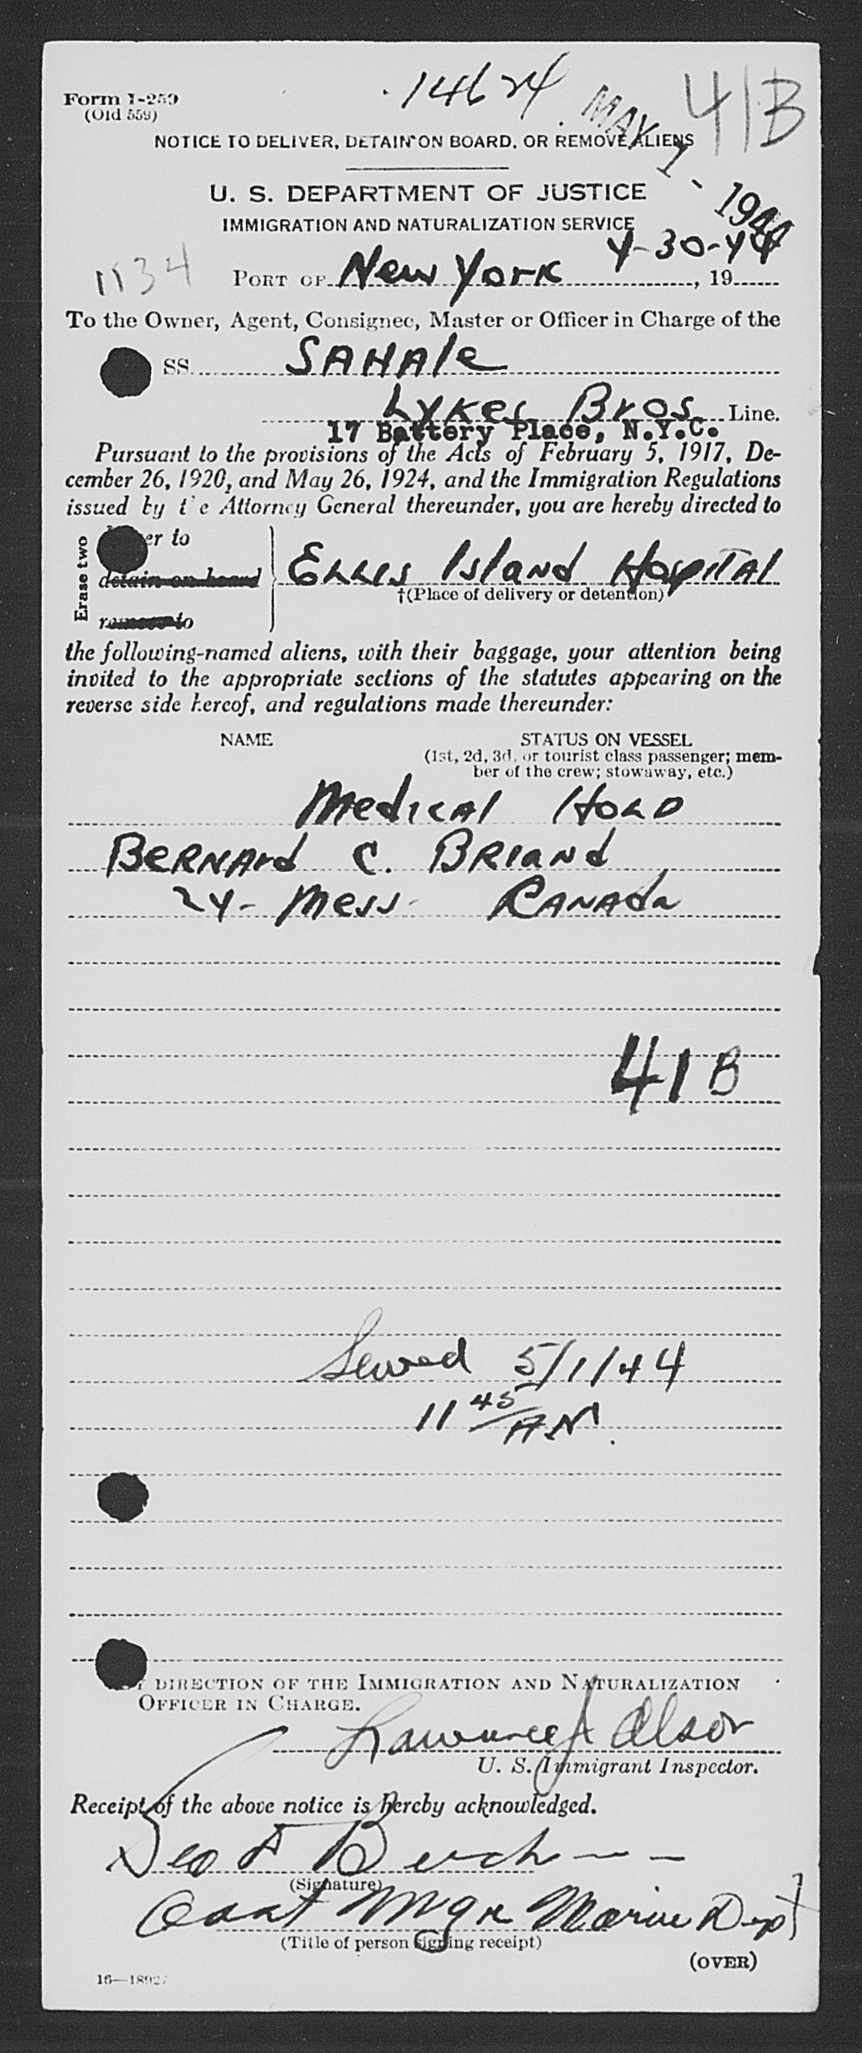 14624
MAY 1 - 1944
41B
Form I-259
(Old 559)
NOTICE TO DELIVER, DETAIN ON BOARD, OR REMOVE ALIENS
U. S. DEPARTMENT OF JUSTICE
IMMIGRATION AND NATURALIZATION SERVICE
1134
4-30-44
PORT OF New York , 19
To the Owner, Agent, Consignee, Master or Officer in Charge of the
SS. SAHAle
Lykes Bros. Line.
17 Battery Place, N.Y.C.
Pursuant to the provisions of the Acts of February 5, 1917, De-
cember 26, 1920, and May 26, 1924, and the Immigration Regulations
issued by the Attorney General thereunder, you are hereby directed to
Erase two
er to
detain on board
remove to
Ellis Island Hospital
†(Place of delivery or detention)
the following-named aliens, with their baggage, your attention being
invited to the appropriate sections of the statutes appearing on the
reverse side hereof, and regulations made thereunder:
NAME
STATUS ON VESSEL
(1st, 2d, 3d, or tourist class passenger; mem-
ber of the crew; stowaway, etc.)
Medical Hold
Bernard C. Briand
24- Mess- Canada
41B
Served 5/1/44
11 45 AM.
DIRECTION OF THE IMMIGRATION AND NATURALIZATION
OFFICER IN CHARGE.
Lawrence J Alsor
U. S. Immigrant Inspector.
Receipt of the above notice is hereby acknowledged.
Geo
(Signature)
Mgr Marine Dept
(Title of person signing receipt)
(OVER)